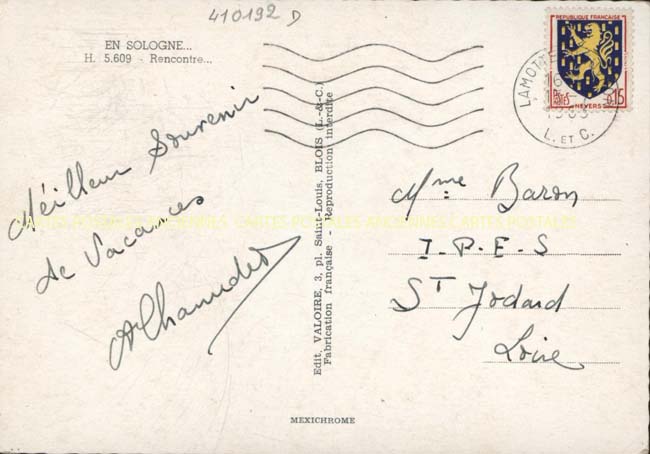 410192 D
EN SOLOGNE...
H. 5.609 - Rencontre...
Meilleur Souvenir
de Vacances
Edit. VALOIRE, 3, pl. Saint-Louis, BLOIS (L.-&-C.)
Fabrication française - Reproduction interdite
REPUBLIQUE FRANÇAISE
POSTES
0,15
NEVERS
LAMOTTE
16
1963
L. ET C.
Mme Baron
I.P.E.S
ST Jodard
Loire
MEXICHROME
CARTES POSTALES ANCIENNES CARTES POSTALES ANCIENNES CARTES POSTALES